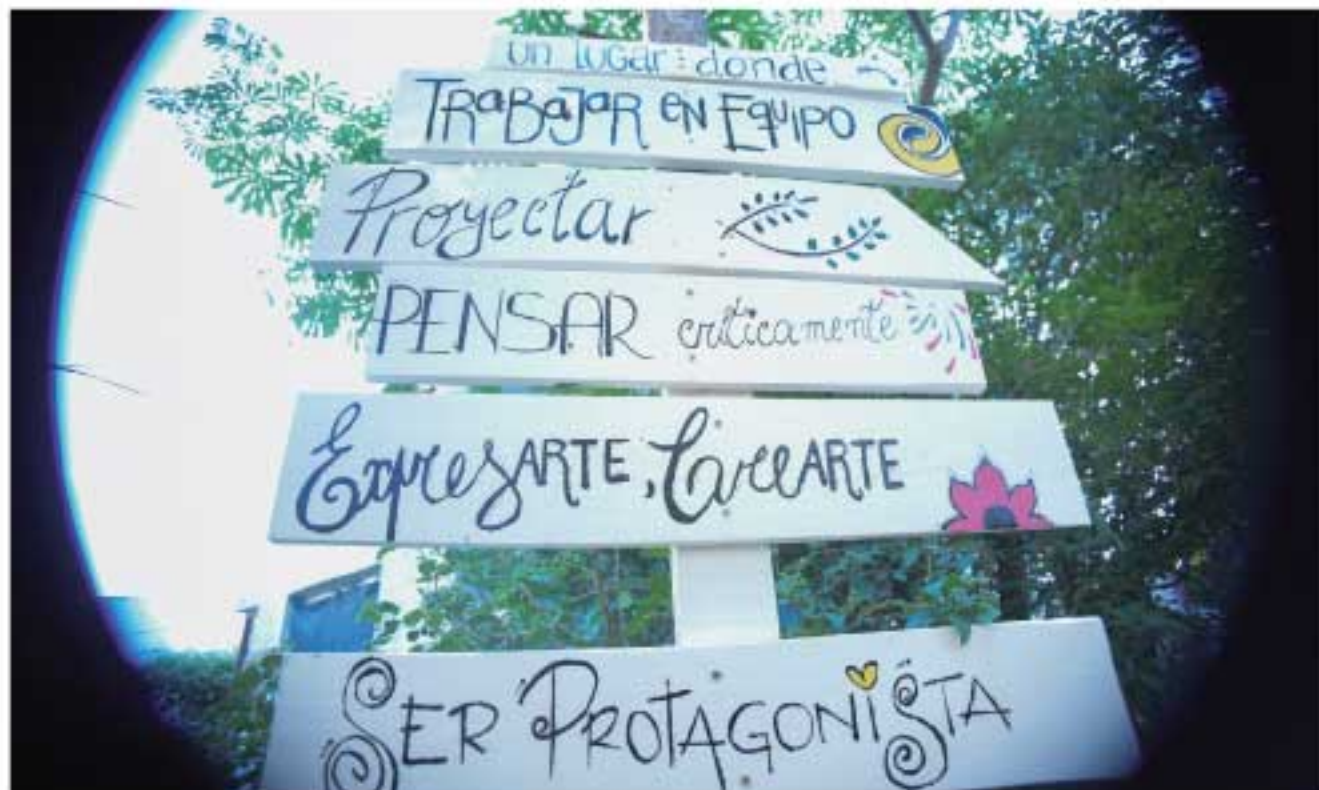 un lugar: donde
TRaBaJaR eN EqUIPO
Proyectar
PENSAR críticamente
ExpresARTE, CreARTE
SER PROTAGONiSTA